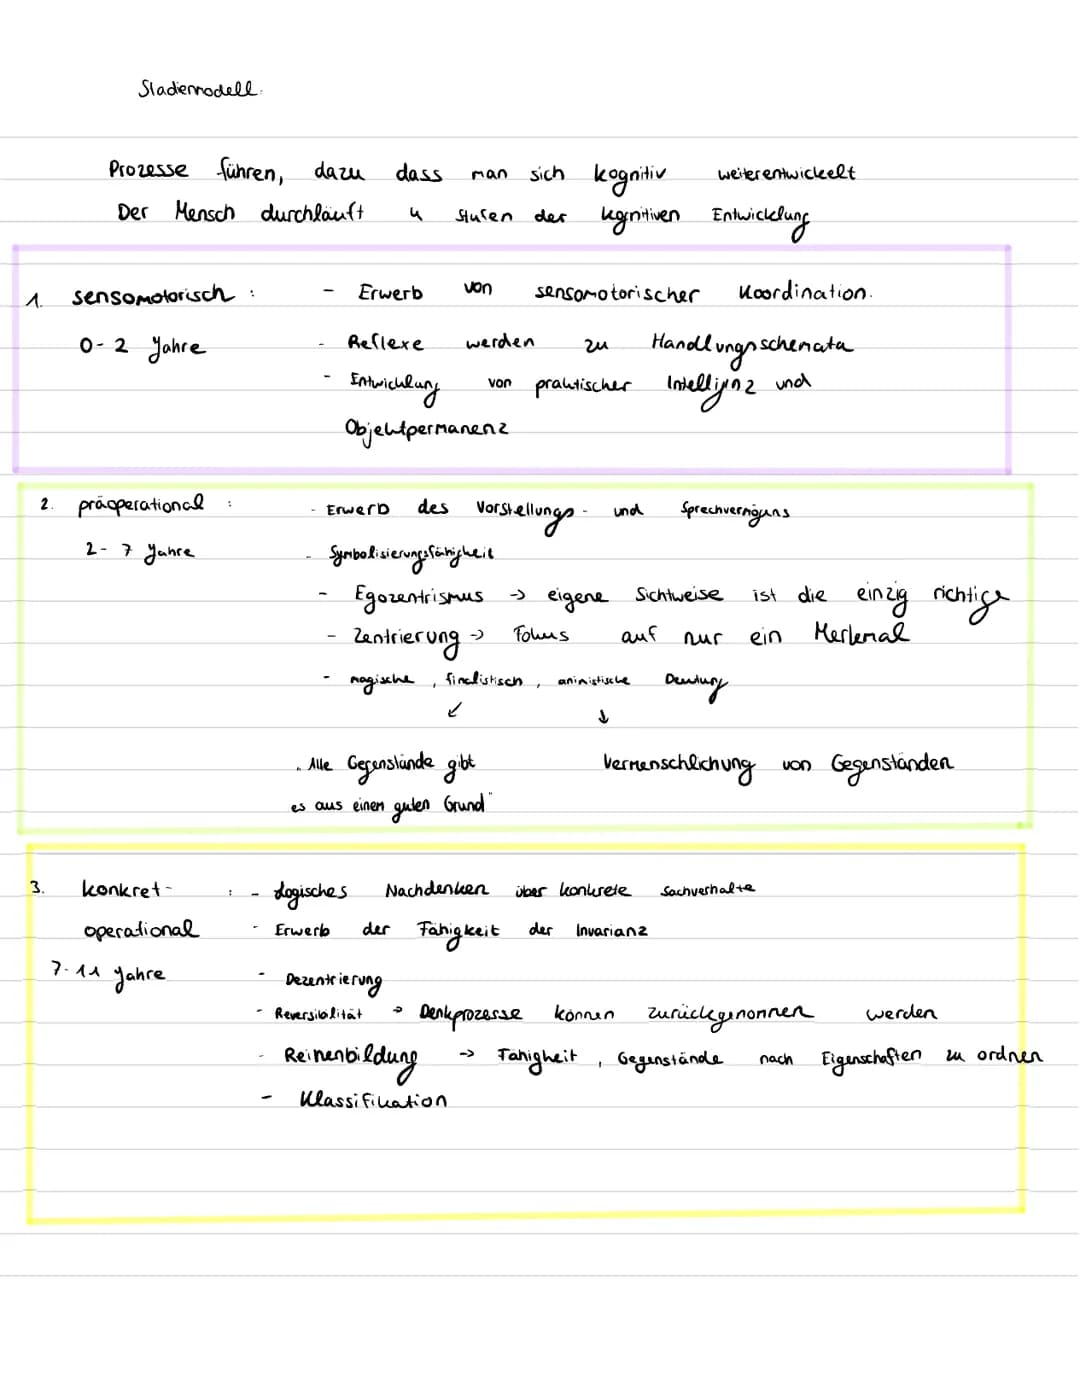 Stadienmodell.
Prozesse führen, dazu dass man sich kognitiv weiterentwickelt
Der Mensch durchläuft 4 Stufen der kognitiven Entwicklung
1. sensomotorisch : - Erwerb von sensomotorischer Koordination.
0-2 Jahre - Reflexe werden zu Handlungsschemata
- Entwicklung von praktischer Intelligenz und
Objektpermanenz
2. präoperational : - Erwerb des Vorstellungs- und Sprechvermögens
2-7 Jahre - Symbolisierungsfähigkeit
- Egozentrismus -> eigene Sichtweise ist die einzig richtige
- Zentrierung -> Fokus auf nur ein Merkmal
- magische, finalistisch, animistische Deutung
↙ ↓
"Alle Gegenstände gibt Vermenschlichung von Gegenständen
es aus einem guten Grund"
3. konkret- : - Logisches Nachdenken über konkrete Sachverhalte
operational - Erwerb der Fähigkeit der Invarianz
7-11 Jahre - Dezentrierung
- Reversibilität -> Denkprozesse können zurückgenommen werden
- Reihenbildung -> Fähigkeit, Gegenstände nach Eigenschaften zu ordnen
- Klassifikation